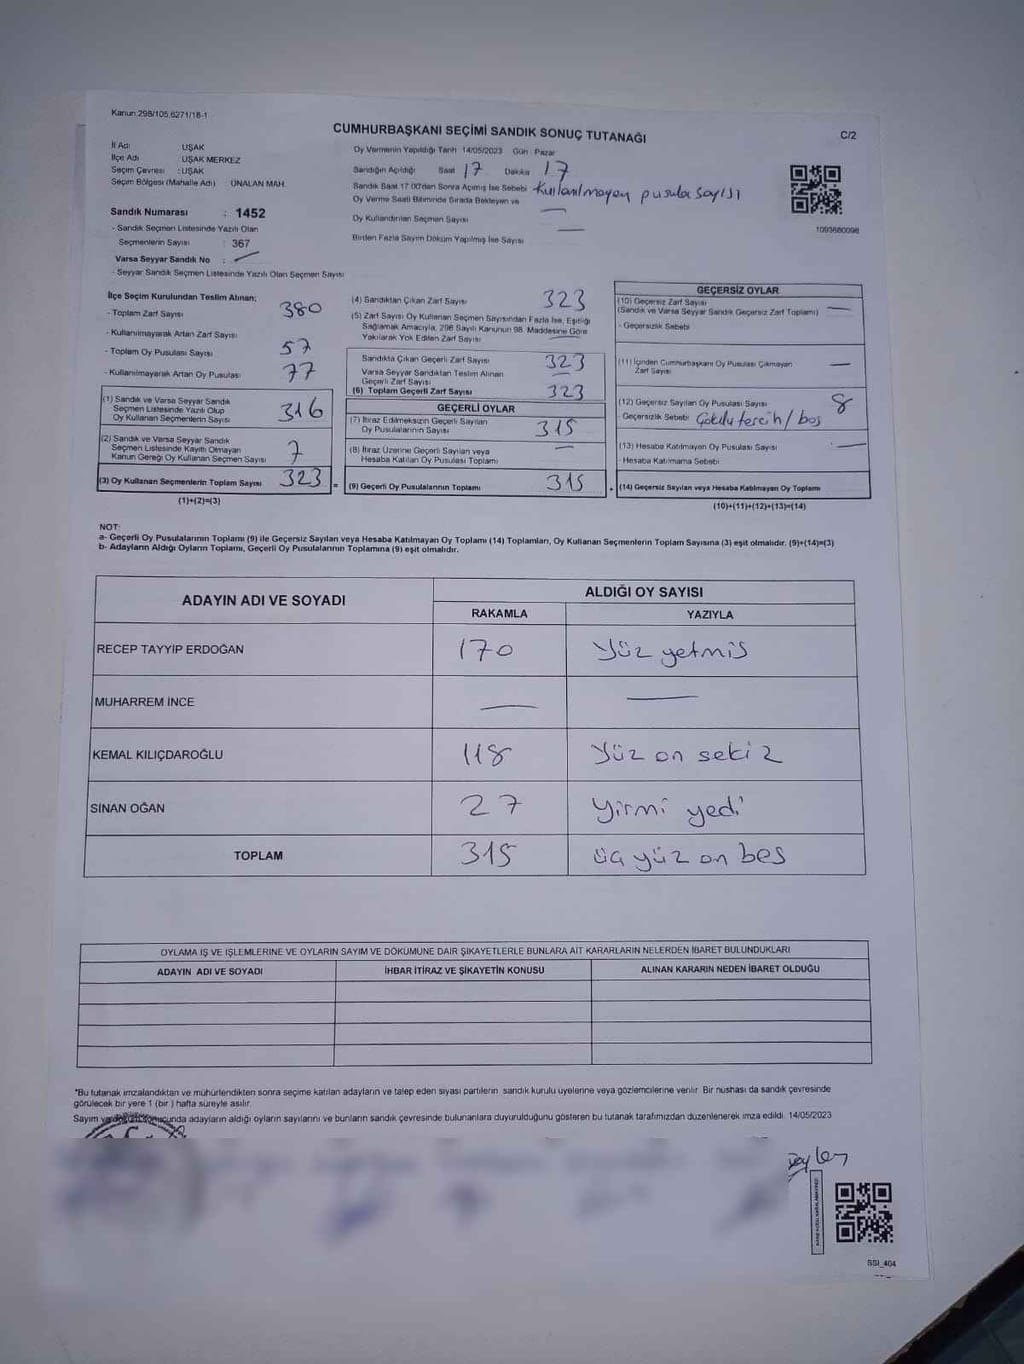 Kanun:298/105,6271/18-1
CUMHURBAŞKANI SEÇİMİ SANDIK SONUÇ TUTANAĞI
C/2
İl Adı UŞAK
İlçe Adı UŞAK MERKEZ
Seçim Çevresi : UŞAK
Seçim Bölgesi (Mahalle Adı) ÜNALAN MAH.
Sandık Numarası : 1452
- Sandık Seçmen Listesinde Yazılı Olan
Seçmenlerin Sayısı : 367
Varsa Seyyar Sandık No :
- Seyyar Sandık Seçmen Listesinde Yazılı Olan Seçmen Sayısı
Oy Vermenin Yapıldığı Tarih 14/05/2023 Gün : Pazar
Sandığın Açıldığı Saat 17 Dakika 17
Sandık Saat 17.00'dan Sonra Açılmış İse Sebebi Kullanılmayan pusula sayısı
Oy Verme Saati Bitiminde Sırada Bekleyen ve
Oy Kullandırılan Seçmen Sayısı —
Birden Fazla Sayım Döküm Yapılmış İse Sayısı —
1093680098
İlçe Seçim Kurulundan Teslim Alınan;
- Toplam Zarf Sayısı 380
- Kullanılmayarak Artan Zarf Sayısı 57
- Toplam Oy Pusulası Sayısı
- Kullanılmayarak Artan Oy Pusulası 77
(1) Sandık ve Varsa Seyyar Sandık
Seçmen Listesinde Yazılı Olup
Oy Kullanan Seçmenlerin Sayısı 316
(2) Sandık ve Varsa Seyyar Sandık
Seçmen Listesinde Kayıtlı Olmayan
Kanun Gereği Oy Kullanan Seçmen Sayısı 7
(3) Oy Kullanan Seçmenlerin Toplam Sayısı 323 =
(1)+(2)=(3)
(4) Sandıktan Çıkan Zarf Sayısı 323
(5) Zarf Sayısı Oy Kullanan Seçmen Sayısından Fazla İse, Eşitliği
Sağlamak Amacıyla, 298 Sayılı Kanunun 98. Maddesine Göre
Yakılarak Yok Edilen Zarf Sayısı —
Sandıkta Çıkan Geçerli Zarf Sayısı 323
Varsa Seyyar Sandıktan Teslim Alınan
Geçerli Zarf Sayısı —
(6) Toplam Geçerli Zarf Sayısı 323
GEÇERLİ OYLAR
(7) İtiraz Edilmeksizin Geçerli Sayılan
Oy Pusulalarının Sayısı 315
(8) İtiraz Üzerine Geçerli Sayılan veya
Hesaba Katılan Oy Pusulası Toplamı —
(9) Geçerli Oy Pusulalarının Toplamı 315 +
GEÇERSİZ OYLAR
(10) Geçersiz Zarf Sayısı
(Sandık ve Varsa Seyyar Sandık Geçersiz Zarf Toplamı) —
- Geçersizlik Sebebi
(11) İçinden Cumhurbaşkanı Oy Pusulası Çıkmayan
Zarf Sayısı —
(12) Geçersiz Sayılan Oy Pusulası Sayısı 8
- Geçersizlik Sebebi Çoklu tercih / boş
(13) Hesaba Katılmayan Oy Pusulası Sayısı : —
- Hesaba Katılmama Sebebi
(14) Geçersiz Sayılan veya Hesaba Katılmayan Oy Toplamı
(10)+(11)+(12)+(13)=(14)
NOT:
a- Geçerli Oy Pusulalarının Toplamı (9) ile Geçersiz Sayılan veya Hesaba Katılmayan Oy Toplamı (14) Toplamları, Oy Kullanan Seçmenlerin Toplam Sayısına (3) eşit olmalıdır. (9)+(14)=(3)
b- Adayların Aldığı Oyların Toplamı, Geçerli Oy Pusulalarının Toplamına (9) eşit olmalıdır.
ADAYIN ADI VE SOYADI ALDIĞI OY SAYISI
RAKAMLA YAZIYLA
RECEP TAYYİP ERDOĞAN 170 Yüz yetmiş
MUHARREM İNCE — —
KEMAL KILIÇDAROĞLU 118 Yüz on sekiz
SİNAN OĞAN 27 Yirmi yedi
TOPLAM 315 üç yüz on beş
OYLAMA İŞ VE İŞLEMLERİNE VE OYLARIN SAYIM VE DÖKÜMÜNE DAİR ŞİKAYETLERLE BUNLARA AİT KARARLARIN NELERDEN İBARET BULUNDUKLARI
ADAYIN ADI VE SOYADI İHBAR İTİRAZ VE ŞİKAYETİN KONUSU ALINAN KARARIN NEDEN İBARET OLDUĞU
*Bu tutanak imzalandıktan ve mühürlendikten sonra seçime katılan adayların ve talep eden siyasi partilerin sandık kurulu üyelerine veya gözlemcilerine verilir. Bir nushası da sandık çevresinde
görülecek bir yere 1 (bir ) hafta süreyle asılır.
Sayım ve döküm sonucunda adayların aldığı oyların sayılarını ve bunların sandık çevresinde bulunanlara duyurulduğunu gösteren bu tutanak tarafımızdan düzenlenerek imza edildi. 14/05/2023
SSI_404